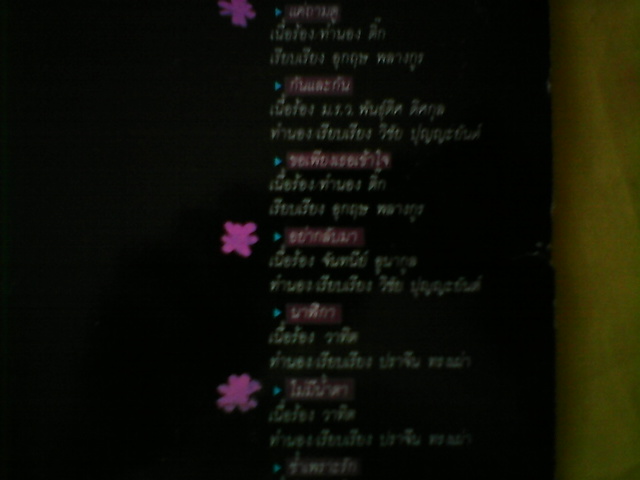 แค่ถามดู
เนื้อร้อง/ทำนอง ติ๊ก
เรียบเรียง อุกฤษ พลางกูร
กันและกัน
เนื้อร้อง ม.ร.ว. พันธุ์ดิศ ดิศกุล
ทำนอง/เรียบเรียง วิชัย ปุญญะยันต์
ขอเพียงเธอเข้าใจ
เนื้อร้อง/ทำนอง ติ๊ก
เรียบเรียง อุกฤษ พลางกูร
อย่ากลับมา
เนื้อร้อง จันทนีย์ อูนากูล
ทำนอง/เรียบเรียง วิชัย ปุญญะยันต์
นาฬิกา
เนื้อร้อง วาทิต
ทำนอง/เรียบเรียง ปราจีน ทรงเผ่า
ไม่มีน้ำตา
เนื้อร้อง วาทิต
ทำนอง/เรียบเรียง ปราจีน ทรงเผ่า
ช้ำเพราะรัก